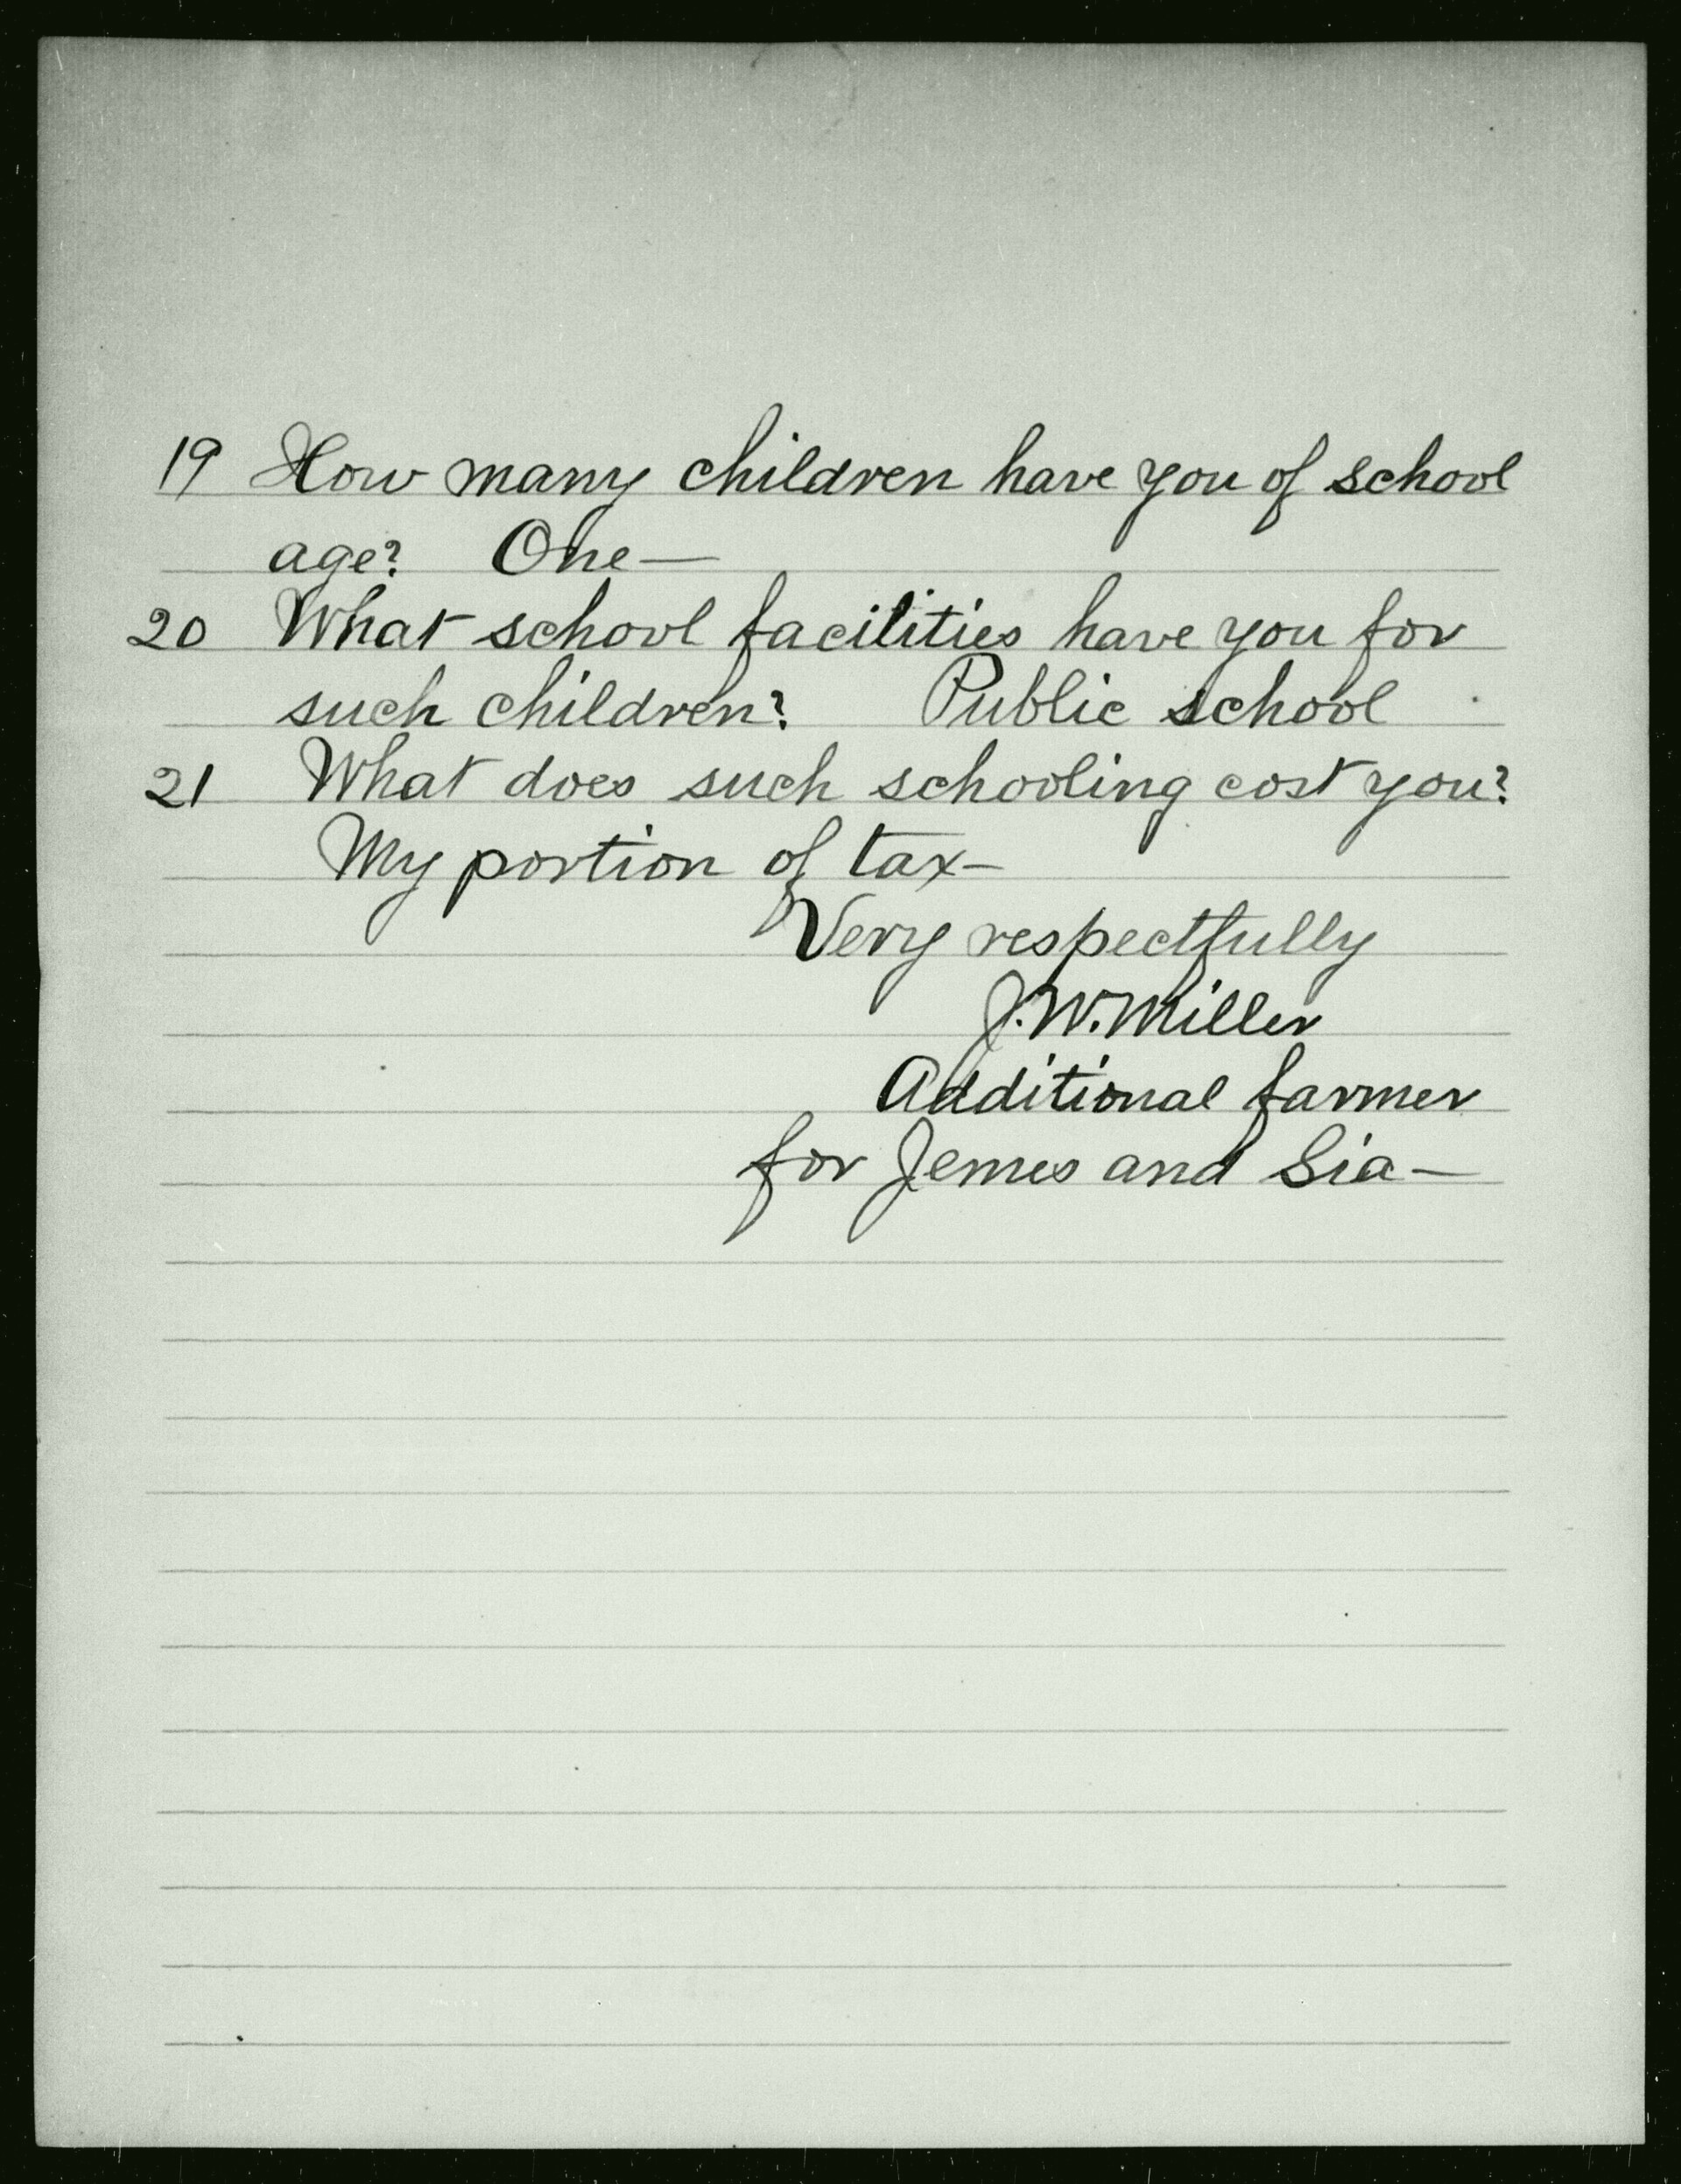 19 How many children have you of school
age? One—
20 What school facilities have you for
such children? Public school
21 What does such schooling cost you?
My portion of tax—
Very respectfully
J. W. Miller
Additional farmer
for Jemes and Sia—